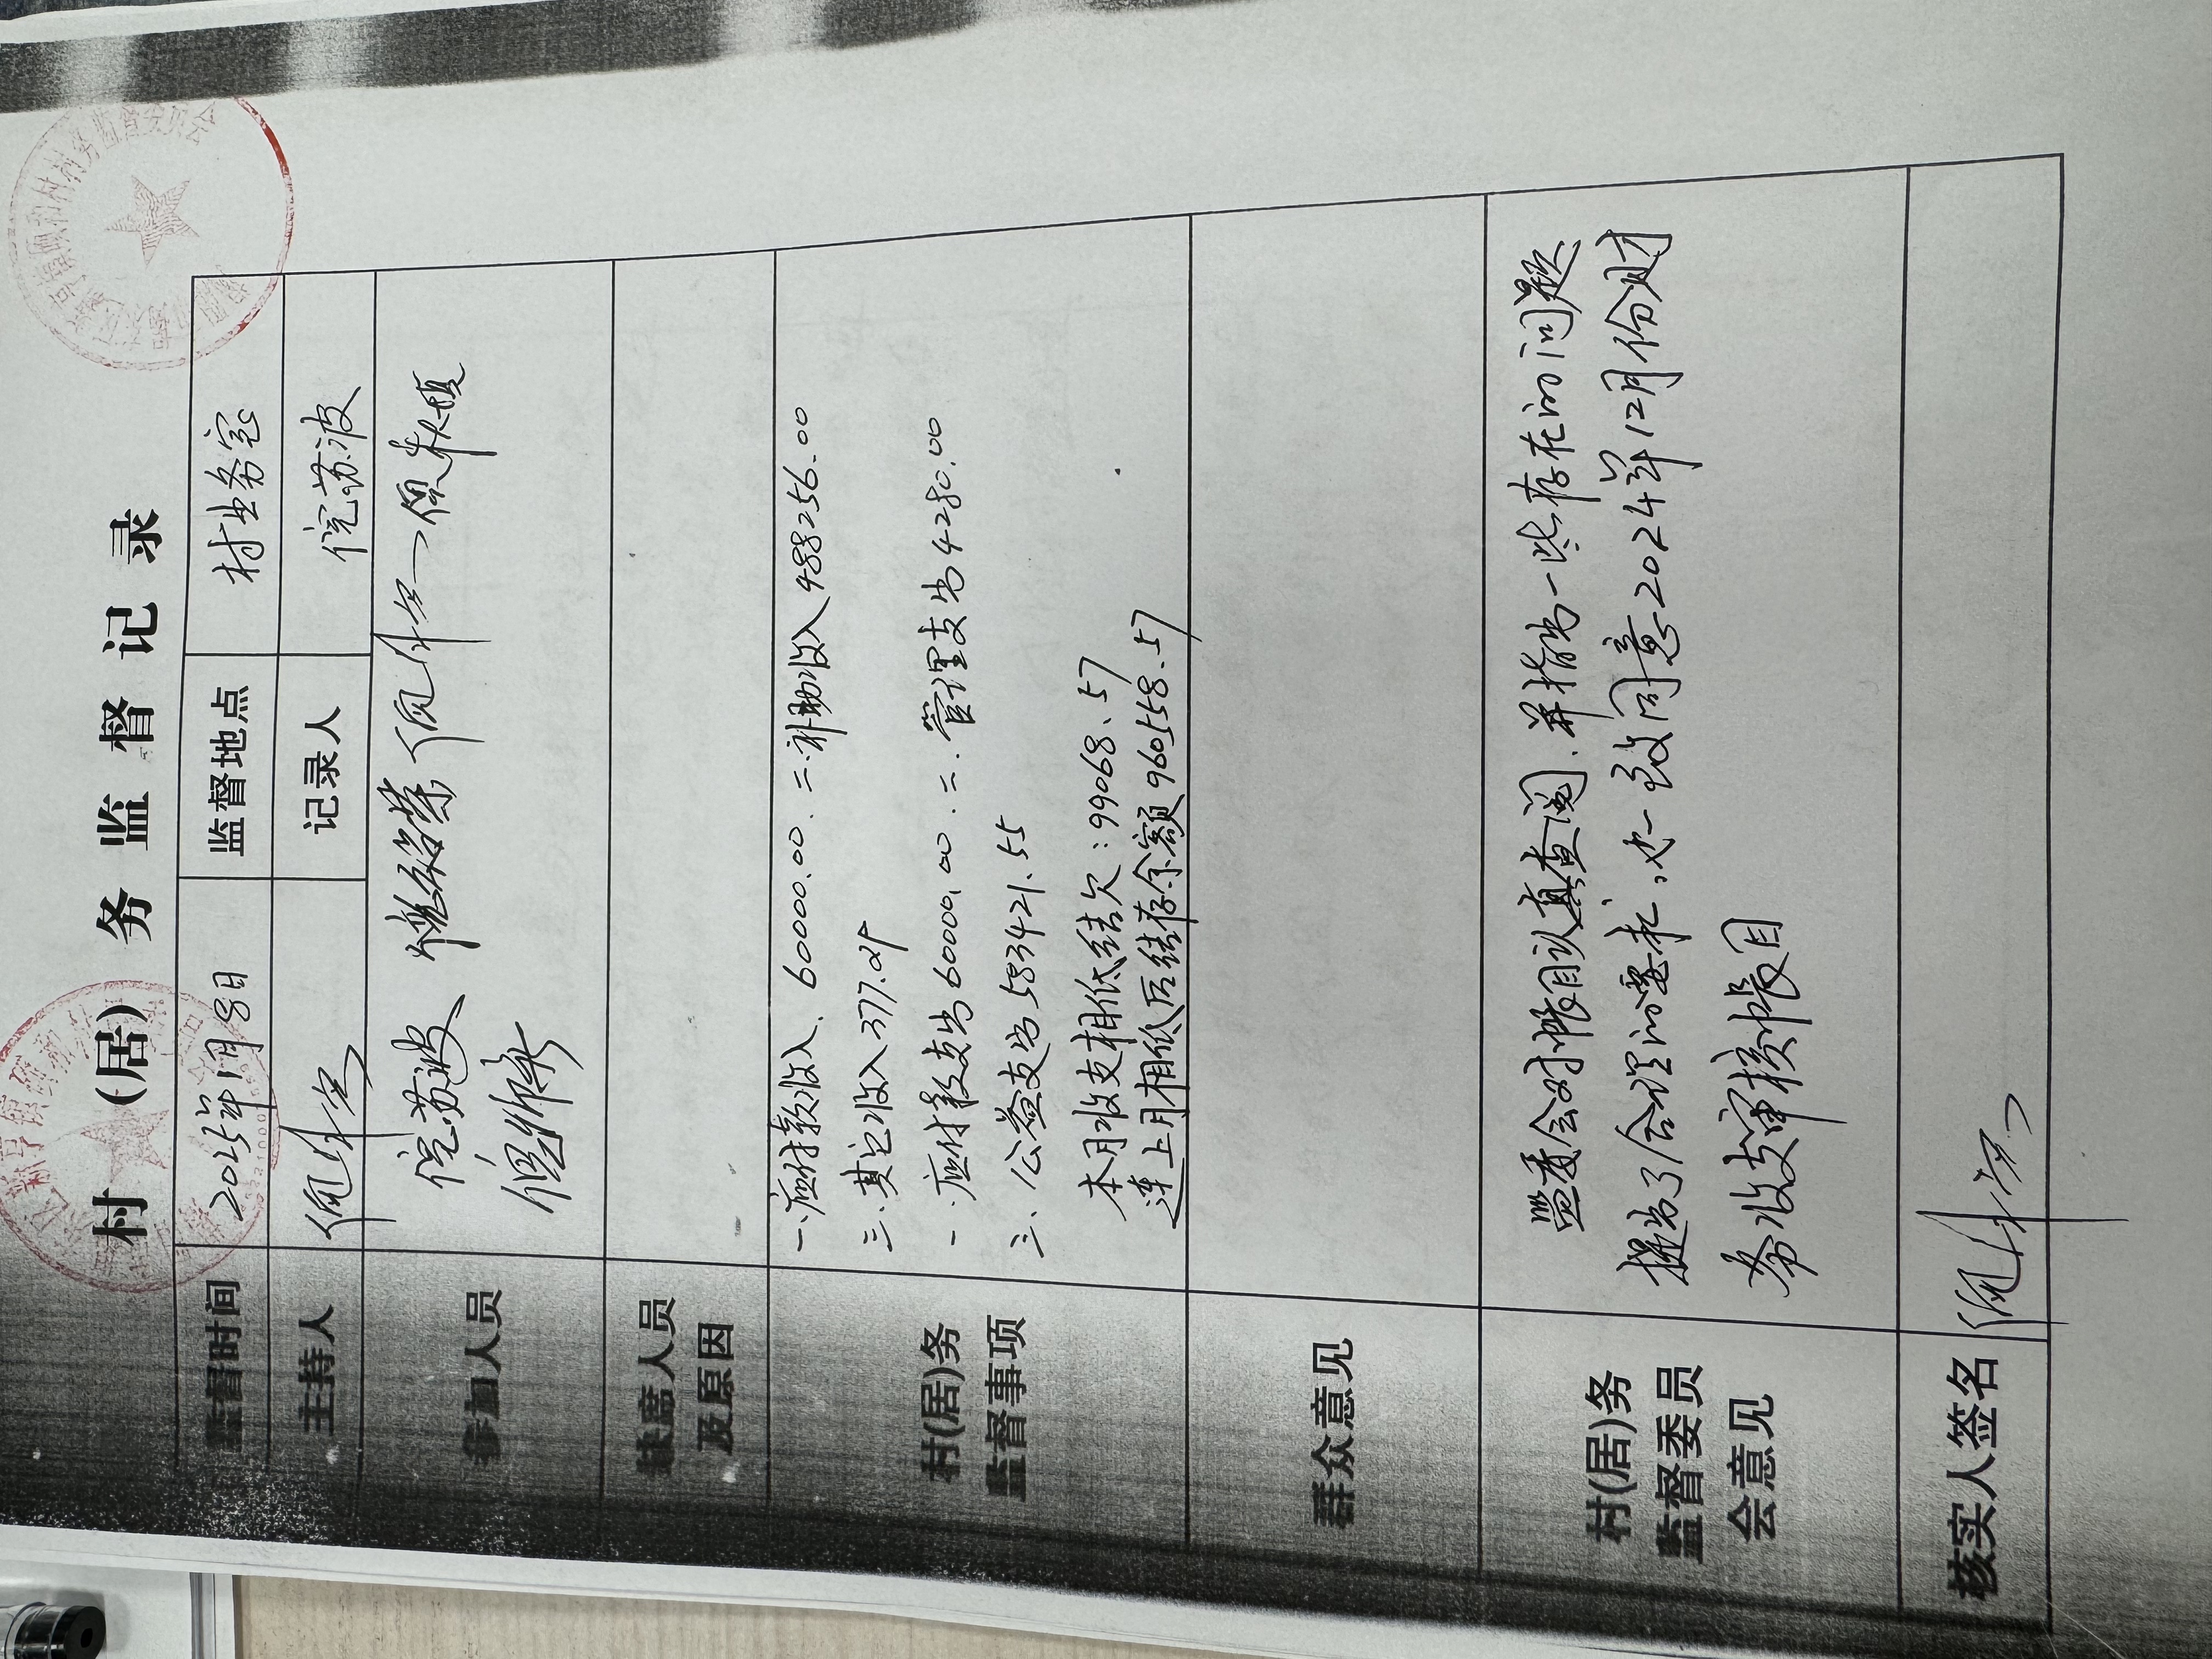 村(居)务监督记录
监督时间 2025年1月8日 监督地点 村业务室
主持人 记录人 倪苏波
参加人员 倪苏波
缺席人员
及原因
村(居)务
监督事项
一、应付款收入、60000.00.二.补助收入488256.00
三.其它收入377.
一、应付款支出60000.00.二.管理支出4280.00
三、公益支出583421.55
本月收支相低结欠:99068.57
连上月相低后结存余额960558.57
群众意见
村(居)务
监督委员
会意见
监委会对帐目认真查阅.并指出一些存在的问题
提出了合理的要求,也一致同意2024年12月份财
务收支审核帐目
核实人签名